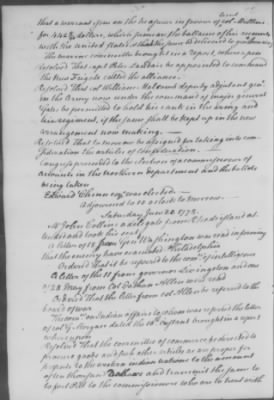 that a warrant issue on the treasurer in favour of col. Wm
for 442 dollars, which being the ballance of his account
with the United States & that the same be delivered to
The marine committee brought in a report, whereupon
Resolved That capt Peter Landais be appointed to command
the new frigate called the alliance.
Resolved That col William Malcom deputy adjutant gene
in the Army now under the command of major general
Gates be permitted to hold his rank in the army and
his regiment, if the same shall be kept up in the new
arrangement now making. —
Resolved That to morrow be assigned for taking into con
sideration the articles of Confederation. —
Congress proceeded to the election of a commissioner of
accounts in the northern department and the ballots
being taken
Edward Chinn esqr was elected. —
Adjourned to 10 o'clock to morrow.
Saturday June 20 1778.
Mr John Collins a delegate from Rhode island at
tended and took his seat,
A letter of 18 from Genl Washington was read informing
that the enemy have evacuated Philadelphia
Ordered That it be referred to the comee of intelligence
A letter of the 11 from governor Livingston and one
of 28 May from Col Ethan Allen were read
Ordered That the letter from col. Allen be referred to the
board of war.
The comee on Indian affairs to whom was referred the letter
of col G Morgan dated the 16th brought in a report
whereupon
Resolved That the committee of commerce be directed to
procure goods and such other articles as are proper for
presents to the western indian nations to the amount
of ten thousand Dollars and transmit the same to
to fort Pitt to the commissioners who are to treat with